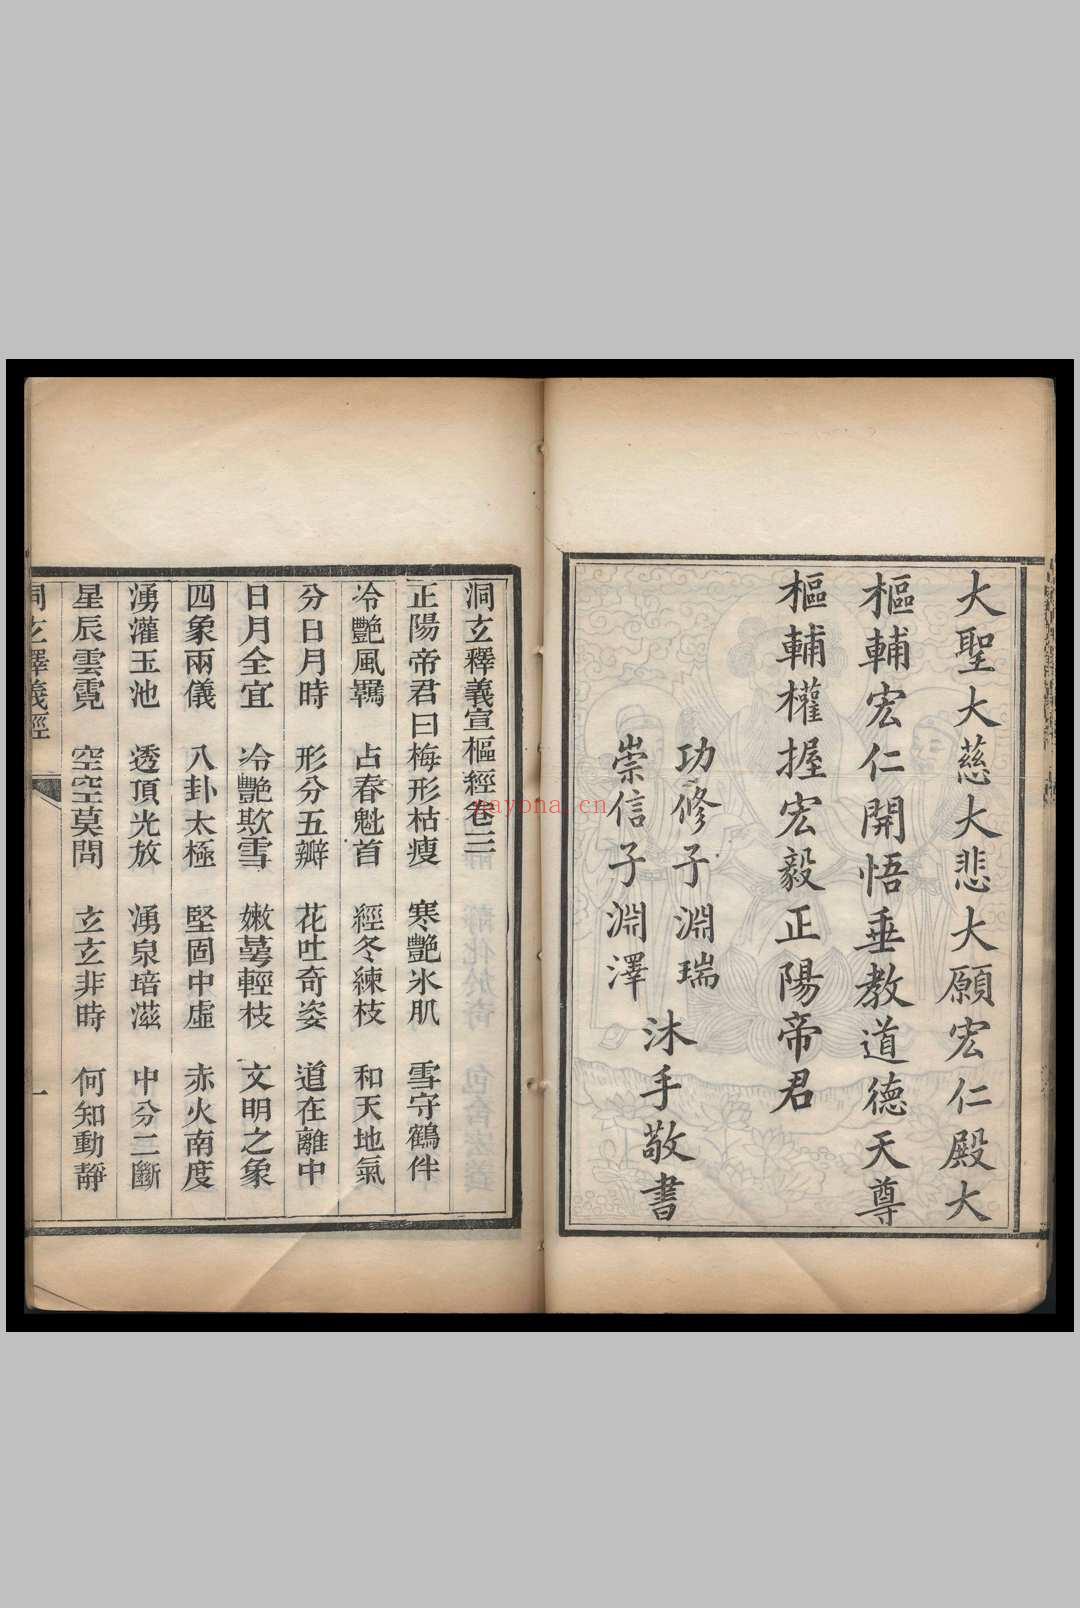 大聖大慈大悲大願宏仁殿大
樞輔宏仁開悟垂教道德天尊
樞輔權握宏毅正陽帝君
功修子淵瑞
崇信子淵澤
沐手敬書
洞玄釋義宣樞經卷三
正陽帝君曰梅形枯瘦 寒艷氷肌 雪守鶴伴
冷艷風羈 占春魁首 經冬練枝 和天地氣
分日月時 形分五瓣 花吐奇姿 道在離中
日月全宜 冷艷欺雪 嫩萼輕枝 文明之象
四象兩儀 八卦太極 堅固中虛 赤火南度
湧灌玉池 透頂光放 湧泉培滋 中分二斷
星辰雲霓 空空莫問 玄玄非時 何知動靜
洞玄釋義經 一
nayona.cn